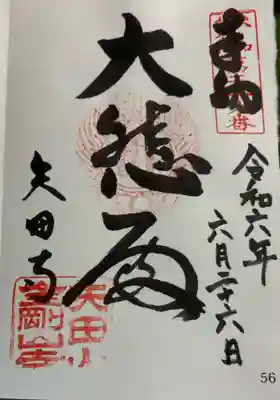 奉拝
大
令和六年
六月二十六日
矢田寺
矢田山
金剛山寺
56